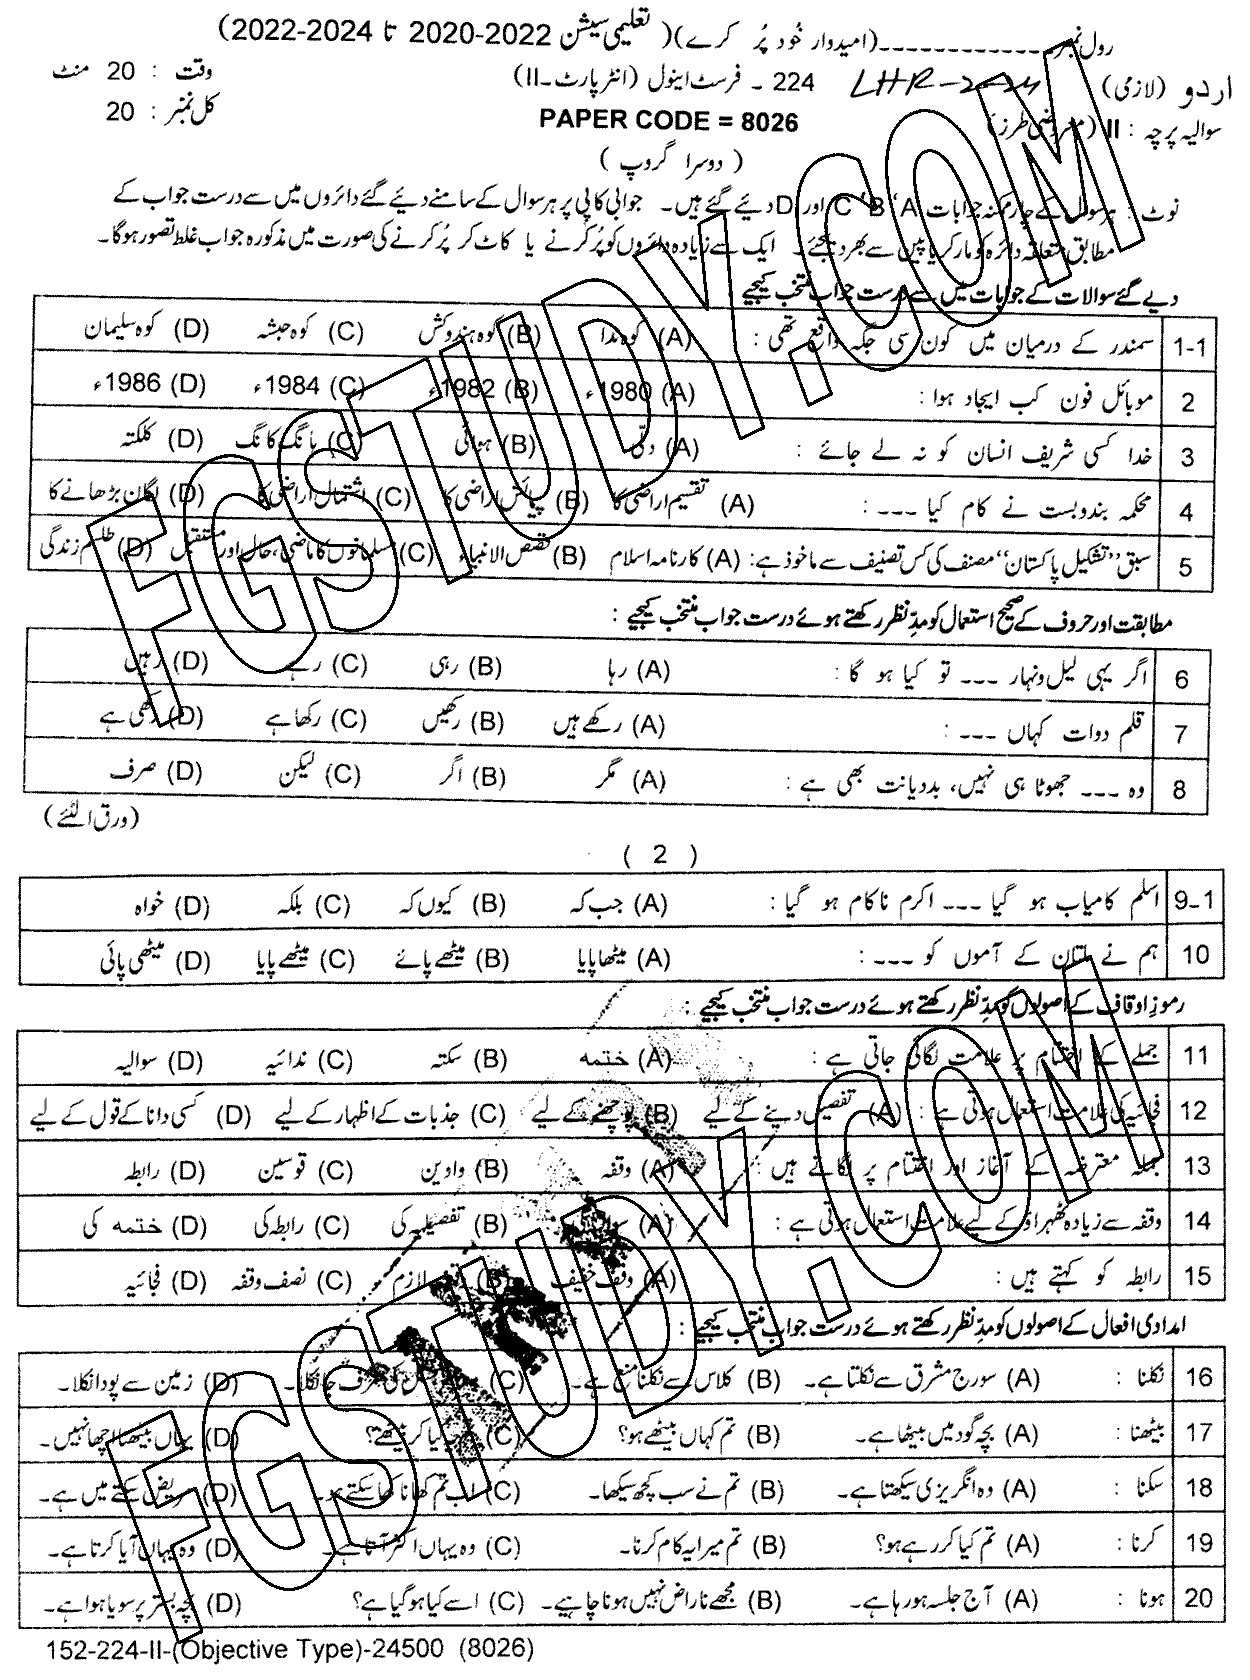 رول نمبر ------------ (امیدوار خود پُر کرے) (تعلیمی سیشن 2022-2020 تا 2024-2022)
اردو (لازمی) LHR-2-24 224 ۔ فرسٹ اینول (انٹر پارٹ۔II) وقت : 20 منٹ
سوالیہ پرچہ : II (معروضی طرز) PAPER CODE = 8026 کل نمبر : 20
( دوسرا گروپ )
نوٹ : ہر سوال کے چار ممکنہ جوابات A ‘B ‘C اور D دیئے گئے ہیں۔ جوابی کاپی پر ہر سوال کے سامنے دیئے گئے دائروں میں سے درست جواب کے
مطابق متعلقہ دائرہ کو مارکر یا پین سے بھر دیجئے۔ ایک سے زیادہ دائروں کو پُر کرنے یا کاٹ کر پُر کرنے کی صورت میں مذکورہ جواب غلط تصور ہوگا۔
دیے گئے سوالات کے جوابات میں سے درست جواب منتخب کیجیے
1-1 سمندر کے درمیان میں کون سی جگہ واقع تھی : (A) کوہ ندا (B) کوہ ہندوکش (C) کوہ حبشہ (D) کوہ سلیمان
2 موبائل فون کب ایجاد ہوا : (A) 1980ء (B) 1982ء (C) 1984ء (D) 1986ء
3 خدا کسی شریف انسان کو نہ لے جائے : (A) دلی (B) ہوائی (C) ہانگ کانگ (D) کلکتہ
4 محکمہ بندوبست نے کام کیا --- : (A) تقسیم اراضی کا (B) پیمائش اراضی کا (C) اشتمال اراضی کا (D) لگان بڑھانے کا
5 سبق ’’تشکیل پاکستان‘‘ مصنف کی کس تصنیف سے ماخوذ ہے : (A) کارنامہ اسلام (B) قصص الانبیاء (C) مسلمانوں کا ماضی، حال اور مستقبل (D) طلسم زندگی
مطابقت اور حروف کے صحیح استعمال کو مدِّ نظر رکھتے ہوئے درست جواب منتخب کیجیے :
6 اگر یہی لیل و نہار --- تو کیا ہو گا : (A) رہا (B) رہی (C) رہے (D) رہیں
7 قلم دوات کہاں --- : (A) رکھے ہیں (B) رکھیں (C) رکھا ہے (D) رکھی ہے
8 وہ --- جھوٹا ہی نہیں، بددیانت بھی ہے : (A) مگر (B) اگر (C) لیکن (D) صرف
(ورق الٹئے)
( 2 )
9-1 اسلم کامیاب ہو گیا --- اکرم ناکام ہو گیا : (A) جب کہ (B) کیوں کہ (C) بلکہ (D) خواہ
10 ہم نے ملتان کے آموں کو --- : (A) میٹھا پایا (B) میٹھے پائے (C) میٹھے پایا (D) میٹھی پائی
رموزِ اوقاف کے اصولوں کو مدِّ نظر رکھتے ہوئے درست جواب منتخب کیجیے :
11 جملے کے اختتام پر علامت لگائی جاتی ہے : (A) ختمہ (B) سکتہ (C) ندائیہ (D) سوالیہ
12 فجائیہ کی علامت استعمال ہوتی ہے : (A) تفصیل دینے کے لیے (B) پوچھنے کے لیے (C) جذبات کے اظہار کے لیے (D) کسی دانا کے قول کے لیے
13 جملہ معترضہ کے آغاز اور اختتام پر لگاتے ہیں : (A) وقفہ (B) واوین (C) قوسین (D) رابطہ
14 وقفہ سے زیادہ ٹھہراؤ کے لیے علامت استعمال ہوتی ہے : (A) (B) تفصیلیہ کی (C) رابطہ کی (D) ختمہ کی
15 رابطہ کو کہتے ہیں : (A) وقف خفیف (B) لازم (C) نصف وقفہ (D) فجائیہ
امدادی افعال کے اصولوں کو مدِّ نظر رکھتے ہوئے درست جواب منتخب کیجیے :
16 نکلنا : (A) سورج مشرق سے نکلتا ہے۔ (B) کلاس سے نکلنا منع ہے۔ (C) کی طرف جا نکلا۔ (D) زمین سے پودا نکلا۔
17 بیٹھنا : (A) بچہ گود میں بیٹھا ہے۔ (B) تم کہاں بیٹھے ہو؟ (C) کیا کر بیٹھے؟ (D) یہاں بیٹھنا اچھا نہیں۔
18 سکنا : (A) وہ انگریزی سیکھتا ہے۔ (B) تم نے سب کچھ سیکھا۔ (C) اب تم کھانا کھا سکتے ہو۔ (D) مریض سکتے میں ہے۔
19 کرنا : (A) تم کیا کر رہے ہو؟ (B) تم میرا یہ کام کرنا۔ (C) وہ یہاں اکثر آتا ہے۔ (D) وہ یہاں آیا کرتا ہے۔
20 ہونا : (A) آج جلسہ ہو رہا ہے۔ (B) مجھے ناراض نہیں ہونا چاہیے۔ (C) اسے کیا ہو گیا ہے؟ (D) بچہ بستر پر سویا ہوا ہے۔
152-224-II-(Objective Type)-24500 (8026)
FGSTUDY.COM
FGSTUDY.COM